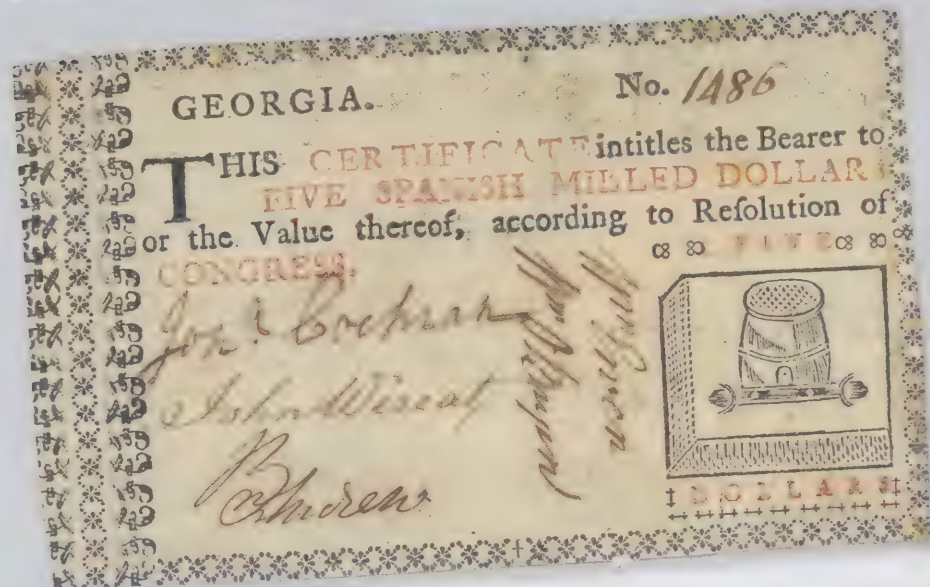 GEORGIA. No. 1486
THIS CERTIFICATE intitles the Bearer to
FIVE SPANISH MILLED DOLLARS
or the Value thereof, according to Reſolution of
CONGRESS.
FIVE
Jonᵃ Cochran
John Wereat
B Andrew
DOLLARS